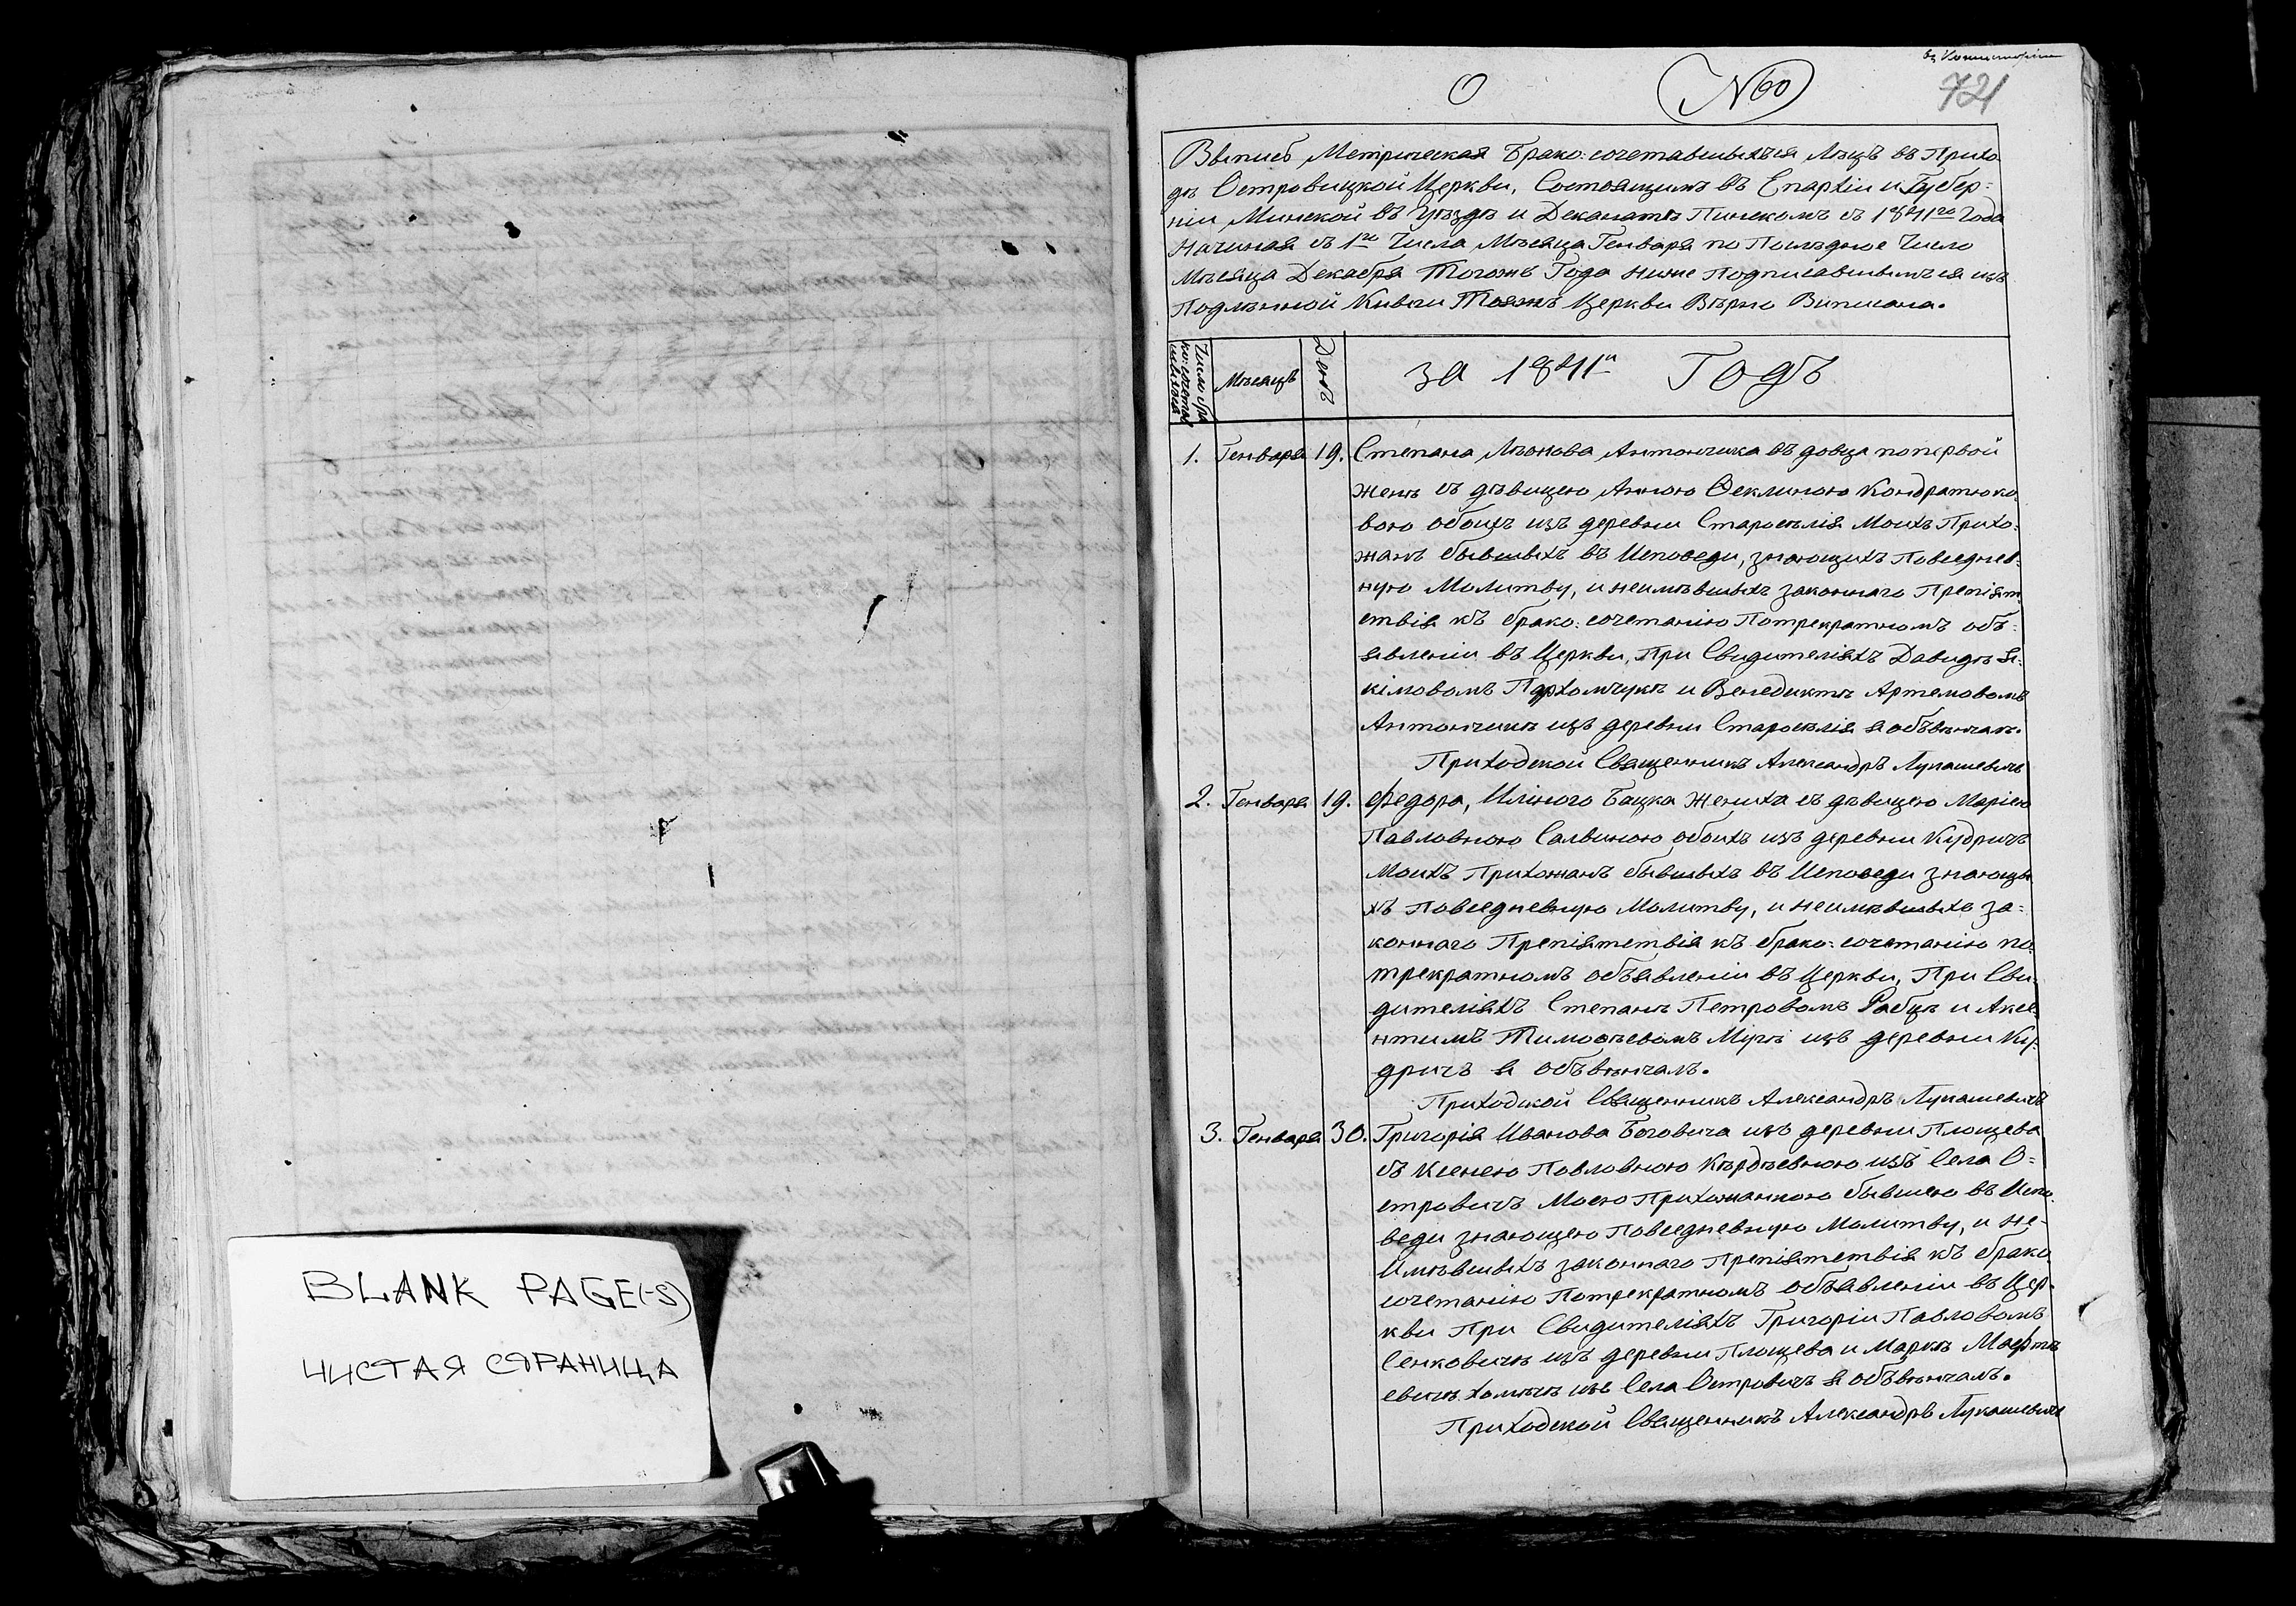 въ Консисторiи
О
N60
721
Выписъ Метрическая Брако:сочетавшихъся Лицъ въ Прихо
дѣ Островицкой Церкви, Состоящимъ въ Епархіи и Губер=
ніи Минской въ Уѣздѣ и Деканатѣ Пинскомъ съ 1841го Года
Начиная съ 1го Числа Мѣсяца Генваря по Послѣднее Число
Мѣсяца Декабря Тогожъ Года ниже Подписавшимъся изъ
Подлѣнной Книги Тоежъ Церкви Вѣрно Виписана.
Число бра
ко:сочета
вшихся
Мѣсяцъ
День
за 1841й Годъ
1. Генваря 19. Степана Лѣонова Антончика въ довца по первой
женѣ съ дѣвицею Анною Феклиною Кондратюко
вою обоихъ изъ деревни Староселія Моихъ Прихо:
жанъ бывшихъ въ Исповеди, знающихъ Повседнев:
ную Молитву, и неимѣвшихъ законнаго Препіят
ствія къ брако:сочетанію Потрекратномъ объ:
явленіи въ Церкви, При Свидителяхъ Давидѣ Я:
кімовомъ Пархомчукѣ и Венедиктѣ Артемовомъ
Антончикѣ изъ деревни Староселія я объвѣнчалъ.
Приходской Священникъ Александръ Лукашевичъ
2. Генваря 19. Федора, Иліного Бацка Жениха съ дѣвицею Маріею
Павловною Савиною обоихъ изъ деревни Кудричъ
Моихъ Прихожанъ бывшихъ въ Исповеди знающи
хъ Повседневную Молитву, и неимѣвшихъ за=
коннаго Препіятствія къ брако:сочетанію по
трекратномъ объявленіи въ Церкви, При Сви
дителяхъ Степанѣ Петровомъ Рабцѣ и Аксе
нтимъ Тимофѣевомъ изъ деревни Ку:
дричъ я объвѣнчалъ.
Приходской Священникъ Александръ Лукашевичъ
3. Генваря 30. Григорія Иванова Боговича изъ деревни Площева
съ Ксенею Павловною изъ Села О=
стровичъ Моею Прихожанкою бывшею въ Испо
веди знающею Повседневную Молитву, и не-
имѣвшихъ законнаго Препіятствія къ брако
сочетанію Потрекратномъ объявленіи въ Цер-
кви При Свидителяхъ Григоріи Павловомъ
Сенковичѣ изъ деревни Площева и Маркѣ Матфѣ
евичѣ изъ Села Островичъ я объвѣнчалъ.
Приходской Священникъ Александръ Лукашевичъ
BLANK PAGE(-S)
ЧИСТАЯ СТРАНИЦА